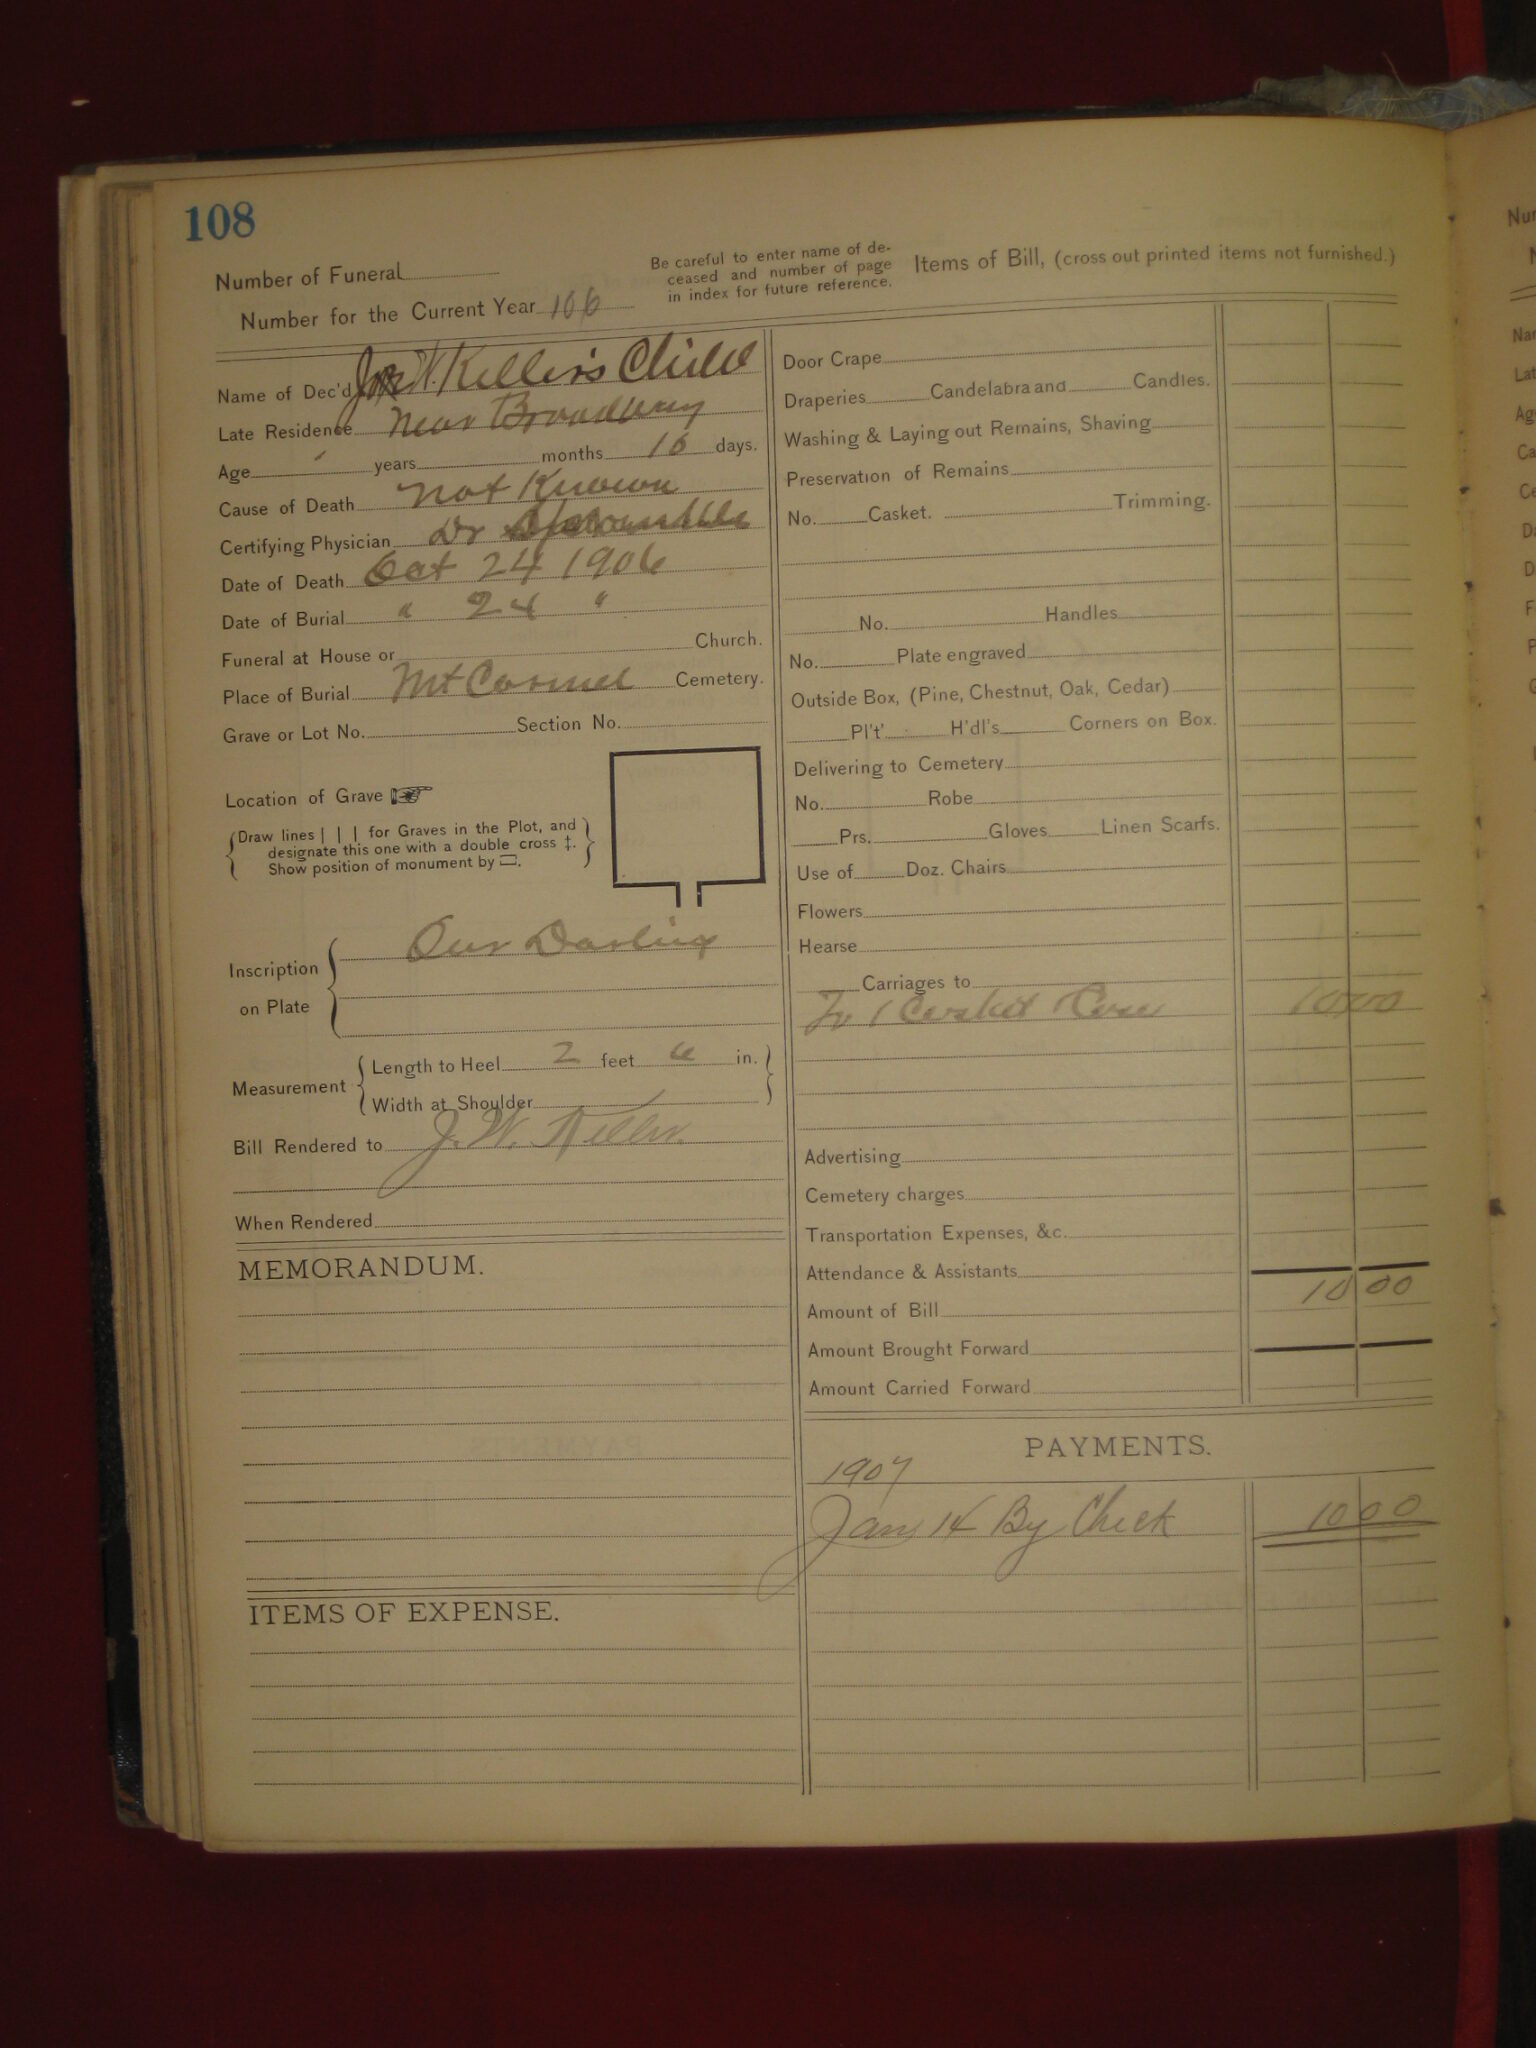 108
Number of Funeral
Number for the Current Year 106
Be careful to enter name of de-
ceased and number of page
in index for future reference.
Items of Bill, (cross out printed items not furnished.)
Name of Dec'd W. Keller's Child
Late Residence Near Broadway
Age years months 16 days.
Cause of Death Not Known
Certifying Physician Dr
Date of Death Oct 24 1906
Date of Burial " 24 "
Funeral at House or Church.
Place of Burial Mt Carmel Cemetery.
Grave or Lot No. Section No.
Location of Grave
Draw lines | | | for Graves in the Plot, and
designate this one with a double cross ‡.
Show position of monument by ▭.
Inscription
on Plate
Our Darling
Measurement
Length to Heel 2 feet 6 in.
Width at Shoulder
Bill Rendered to J. W. Keller
When Rendered
MEMORANDUM.
ITEMS OF EXPENSE.
Door Crape
Draperies Candelabra and Candles.
Washing & Laying out Remains, Shaving
Preservation of Remains
No. Casket. Trimming.
No. Handles
No. Plate engraved
Outside Box, (Pine, Chestnut, Oak, Cedar)
Pl't' H'dl's Corners on Box.
Delivering to Cemetery
No. Robe
Prs. Gloves Linen Scarfs.
Use of Doz. Chairs
Flowers
Hearse
Carriages to
To 1 Casket Case 10 00
Advertising
Cemetery charges
Transportation Expenses, &c.
Attendance & Assistants
Amount of Bill 10 00
Amount Brought Forward
Amount Carried Forward
PAYMENTS.
1907
Jan 14 By Check 10 00